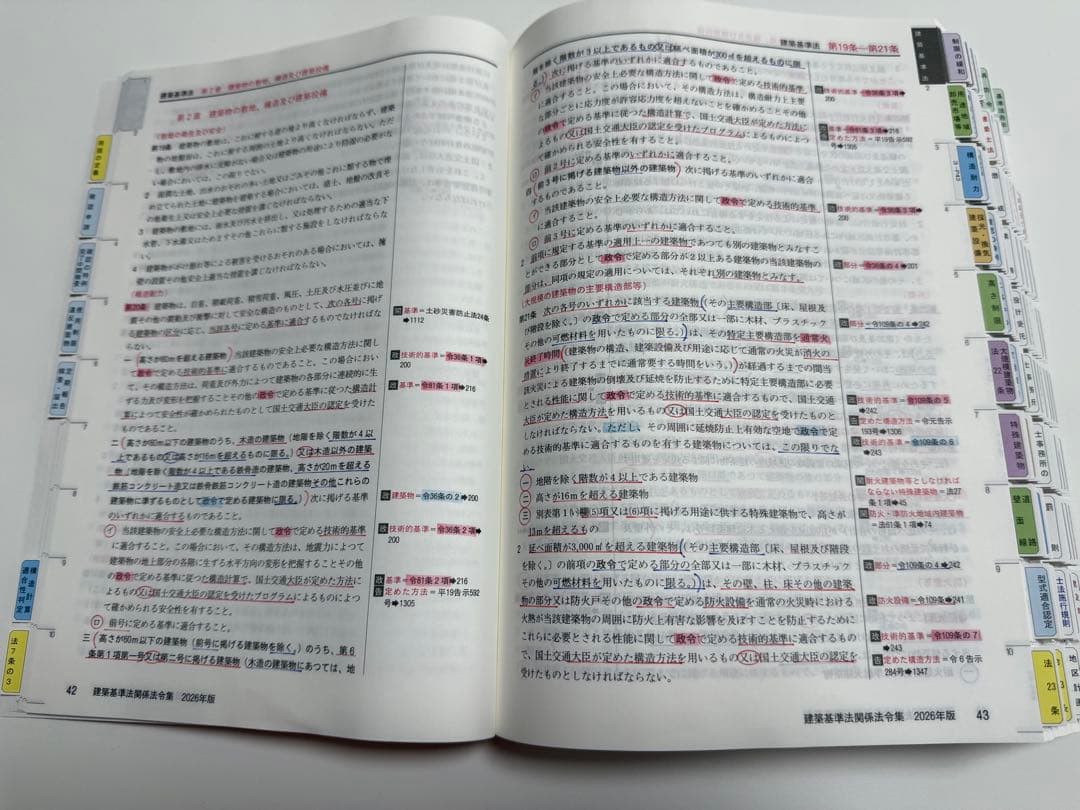 建築基準法 第2章 建築物の敷地、構造及び建築設備
第2章 建築物の敷地、構造及び建築設備
(敷地の衛生及び安全)
第19条 建築物の敷地は、これに接する道の境より高くなければならず、建築
物の地盤面は、これに接する周囲の土地より高くなければならない。ただ
し、敷地内の排水に支障がない場合又は建築物の用途により防湿の必要がな
い場合においては、この限りでない。
2 湿潤な土地、出水のおそれの多い土地又はごみその他これに類する物で埋
め立てられた土地に建築物を建築する場合においては、盛土、地盤の改良そ
の他衛生上又は安全上必要な措置を講じなければならない。
3 建築物の敷地には、雨水及び汚水を排出し、又は処理するための適当な下
水管、下水溝又はためますその他これらに類する施設をしなければならな
い。
4 建築物ががけ崩れ等による被害を受けるおそれのある場合においては、擁
壁の設置その他安全上適当な措置を講じなければならない。
(構造耐力)
第20条 建築物は、自重、積載荷重、積雪荷重、風圧、土圧及び水圧並びに地
震その他の震動及び衝撃に対して安全な構造のものとして、次の各号に掲げ
る建築物の区分に応じ、当該各号に定める基準に適合するものでなければな
らない。
一 高さが60mを超える建築物 当該建築物の安全上必要な構造方法に関して
政令で定める技術的基準に適合するものであること。この場合におい
て、その構造方法は、荷重及び外力によつて建築物の各部分に連続的に生
ずる力及び変形を把握することその他の政令で定める基準に従つた構造計
算によつて安全性が確かめられたものとして国土交通大臣の認定を受けた
ものであること。
二 高さが60m以下の建築物のうち、木造の建築物(地階を除く階数が4以
上であるもの又は高さが16mを超えるものに限る。)又は木造以外の建築
物(地階を除く階数が4以上である鉄骨造の建築物、高さが20mを超える
鉄筋コンクリート造又は鉄骨鉄筋コンクリート造の建築物その他これらの
建築物に準ずるものとして政令で定める建築物に限る。)次に掲げる基準
のいずれかに適合するものであること。
イ 当該建築物の安全上必要な構造方法に関して政令で定める技術的基準
に適合すること。この場合において、その構造方法は、地震力によつて
建築物の地上部分の各階に生ずる水平方向の変形を把握することその他
の政令で定める基準に従つた構造計算で、国土交通大臣が定めた方法に
よるもの又は国土交通大臣の認定を受けたプログラムによるものによつ
て確かめられる安全性を有すること。
ロ 前号に定める基準に適合すること。
三 高さが60m以下の建築物(前号に掲げる建築物を除く。)のうち、第6
条第1項第一号又は第二号に掲げる建築物(木造の建築物にあつては、地
基準=土砂災害防止法24条
➡1112
技術的基準=令36条1項➡
200
基準=令81条1項➡216
建築物=令36条の2➡200
技術的基準=令36条2項➡
200
基準=令81条2項➡216
定めた方法=平19告示592
号➡1305
42 建築基準法関係法令集 2026年版
用語の定義
確認申請
構造計算
適合性判定
法7条の3
建築基準法 第19条―第21条
階を除く階数が3以上であるもの又は延べ面積が300㎡を超えるものに限
る。)次に掲げる基準のいずれかに適合するものであること。
イ 当該建築物の安全上必要な構造方法に関して政令で定める技術的基準
に適合すること。この場合において、その構造方法は、構造耐力上主要
な部分ごとに応力度が許容応力度を超えないことを確かめることその他
の政令で定める基準に従つた構造計算で、国土交通大臣が定めた方法に
よるもの又は国土交通大臣の認定を受けたプログラムによるものによつ
て確かめられる安全性を有すること。
ロ 前2号に定める基準のいずれかに適合すること。
四 前3号に掲げる建築物以外の建築物 次に掲げる基準のいずれかに適合
するものであること。
イ 当該建築物の安全上必要な構造方法に関して政令で定める技術的基準
に適合すること。
ロ 前3号に定める基準のいずれかに適合すること。
2 前項に規定する基準の適用上一の建築物であつても別の建築物とみなすこ
とができる部分として政令で定める部分が2以上ある建築物の当該建築物の
部分は、同項の規定の適用については、それぞれ別の建築物とみなす。
(大規模の建築物の主要構造部等)
第21条 次の各号のいずれかに該当する建築物(その主要構造部(床、屋根及
び階段を除く。)の政令で定める部分の全部又は一部に木材、プラスチック
その他の可燃材料を用いたものに限る。)は、その特定主要構造部を通常火
災終了時間(建築物の構造、建築設備及び用途に応じて通常の火災が消火の
措置により終了するまでに通常要する時間をいう。)が経過するまでの間当
該火災による建築物の倒壊及び延焼を防止するために特定主要構造部に必要
とされる性能に関して政令で定める技術的基準に適合するもので、国土交通
大臣が定めた構造方法を用いるもの又は国土交通大臣の認定を受けたものと
しなければならない。ただし、その周囲に延焼防止上有効な空地で政令で定
める技術的基準に適合するものを有する建築物については、この限りでな
い。
一 地階を除く階数が4以上である建築物
二 高さが16mを超える建築物
三 別表第1(い)欄(5)項又は(6)項に掲げる用途に供する特殊建築物で、高さが
13mを超えるもの
2 延べ面積が3,000㎡を超える建築物(その主要構造部(床、屋根及び階段
を除く。)の前項の政令で定める部分の全部又は一部に木材、プラスチック
その他の可燃材料を用いたものに限る。)は、その壁、柱、床その他の建築
物の部分又は防火戸その他の政令で定める防火設備を通常の火災時における
火熱が当該建築物の周囲に防火上有害な影響を及ぼすことを防止するために
これらに必要とされる性能に関して政令で定める技術的基準に適合するもの
で、国土交通大臣が定めた構造方法を用いるもの又は国土交通大臣の認定を
受けたものとしなければならない。
技術的基準=令36条3項➡
200
基準=令81条3項➡216
定めた方法=平19告示592
号➡1305
技術的基準=令36条3項➡
200
部分=令36条の4➡201
部分=令109条の4➡242
技術的基準=令109条の5
➡242
定めた構造方法=令元告示
193号➡1306
技術的基準=令109条の6
➡243
耐火建築物等としなければ
ならない特殊建築物=法27
条1項➡45
防火・準防火地域内建築物
=法61条1項➡74
部分=令109条の4➡242
防火設備=令109条➡241
技術的基準=令109条の7
➡243
定めた構造方法=令6告示
284号➡1347
建築基準法関係法令集 2026年版 43
建築基準法
制限の緩和
用途地域
卸売市場
構造耐力
採光・換気
建築設備
高さ制限
大規模建築物
法22条
特殊建築物
壁面線
道路
型式適合認定
法23条
士事務所の
士法施行規則